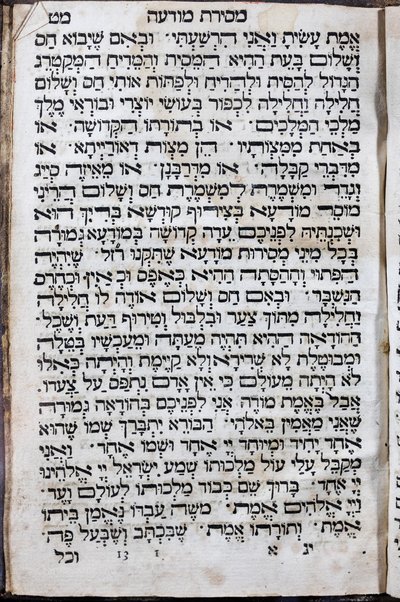 מסירת מודעה מט
אֱמֶת עָשִׂיתָ וַאֲנִי הִרְשַׁעְתִּי׃ וּבְאִם שֶׁיָּבוֹא חַס
וְשָׁלוֹם בָּעֵת הַהִיא הַמֵּסִית וְהַמַּדִּיחַ הַמְקַטְרֵג
הַגָּדוֹל לְהַסִּית וּלְהַדִּיחַ וּלְפַתּוֹת אוֹתִי חַס וְשָׁלוֹם
חָלִילָה וְחָלִילָה לִכְפּוֹר בְּעוֹשִׂי יוֹצְרִי וּבוֹרְאִי מֶלֶךְ
מַלְכֵי הַמְּלָכִים׃ אוֹ בְּתוֹרָתוֹ הַקְּדוֹשָׁה׃ אוֹ
בְּאַחַת מִמִּצְוֹתָיו׃ הֵן מִצְוֹת דְּאוֹרַיְיתָא׃ אוֹ
מִדִּבְרֵי קַבָּלָה׃ אוֹ מִדְּרַבָּנָן׃ אוֹ מֵאֵיזֶה סְיָיג
וְגָדֵר וּמִשְׁמֶרֶת לְמִשְׁמֶרֶת חַס וְשָׁלוֹם הֲרֵינִי
מוֹסֵר מוֹדָעָא בְּצֵירוּף קוּדְשָׁא בְּרִיךְ הוּא
וּשְׁכִנְתֵּיהּ לִפְנֵיכֶם עֵדָה קְדוֹשָׁה בְּמוֹדָעָא גְּמוּרָה
בְּכָל מִינֵי מְסִירוֹת מוֹדָעָא שֶׁתִּקְנוּ רז״ל׃ שֶׁיִּהְיֶה
הַפִּתּוּי וְהַהֲסָתָה הַהִיא בְּאֶפֶס וּכְאַיִן וּכְחֶרֶס
הַנִּשְׁבָּר׃ וּבְאִם חַס וְשָׁלוֹם אוֹדֶה לוֹ חָלִילָה
וְחָלִילָה מִתּוֹךְ צַעַר וּבִלְבּוּל וְטֵירוּף דַּעַת וְשֵׂכֶל
הַהוֹדָאָה הַהִיא תִּהְיֶה מֵעַתָּה וּמֵעַכְשָׁיו בְּטֵלָה
וּמְבוּטֶלֶת לָא שְׁרִירָא וְלָא קַיֶּימֶת וְהָיְתָה כְּאִלּוּ
לֹא הָיְתָה מֵעוֹלָם כִּי אֵין אָדָם נִתְפָּס עַל צַעֲרוֹ׃
אֲבָל בֶּאֱמֶת מוֹדֶה אֲנִי לִפְנֵיכֶם בְּהוֹדָאָה גְמוּרָה
שֶׁאֲנִי מַאֲמִין בֵּאלֹהַי׃ הַבּוֹרֵא יִתְבָּרֵךְ שְׁמוֹ שֶׁהוּא
אֶחָד יָחִיד וּמְיוּחָד יְיָ אֶחָד וּשְׁמוֹ אֶחָד׃ וַאֲנִי
מְקַבֵּל עָלַי עוֹל מַלְכוּתוֹ שְׁמַע יִשְׂרָאֵל יְיָ אֱלֹהֵינוּ
יְיָ אֶחָד׃ בָּרוּךְ שֵׁם כְּבוֹד מַלְכוּתוֹ לְעוֹלָם וָעֶד׃
וַיְיָ אֱלֹהִים אֱמֶת׃ מֹשֶׁה עַבְדּוֹ נֶאֱמַן בֵּיתוֹ
אֱמֶת׃ וְתוֹרָתוֹ אֱמֶת׃ שֶׁבִּכְתָב וְשֶׁבְּעַל פֶּה׃
יג א 13 1 וכל